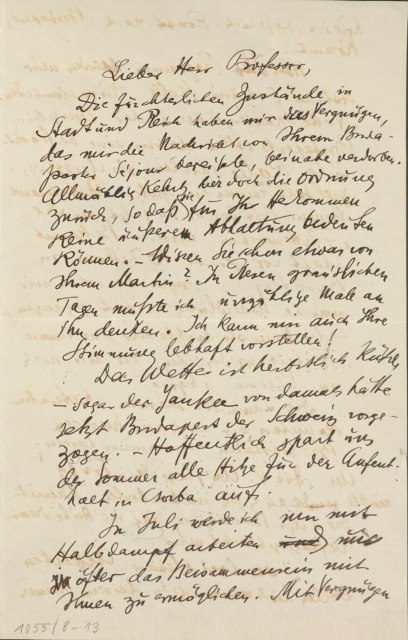 Lieber Herr Professor,
Die fürchterlichen Zustände in
Stadt und haben mir das Vergnügen,
das mir die Nachricht von Ihrem Buda-
pester Sejour bereitete, beinahe verdorben.
Allmählig kehrt hier doch die Ordnung
zurück, so daß sie für Ihr Herkommen
keine äußere Abhaltung bedeuten
können. – Wissen Sie schon etwas von
Ihrem Martin? In diesen grässlichen
Tagen mußte ich unzählige Male an
ihn denken. Ich kann mir auch Ihre
Stimmung lebhaft vorstellen!
Das Wetter ist herbstlich kühl,
– sogar der Yankee von damals hätte
jetzt Budapest der Schweiz vorge-
zogen. – Hoffentlich spart uns
der Sommer alle Hitze für den Aufent-
halt in Csorba auf.
In Juli werde ich nur mit
Halbdampf arbeiten und mir
öfter das Beisammensein mit
Ihnen zu ermöglichen. Mit Vergnügen
1055/8-13